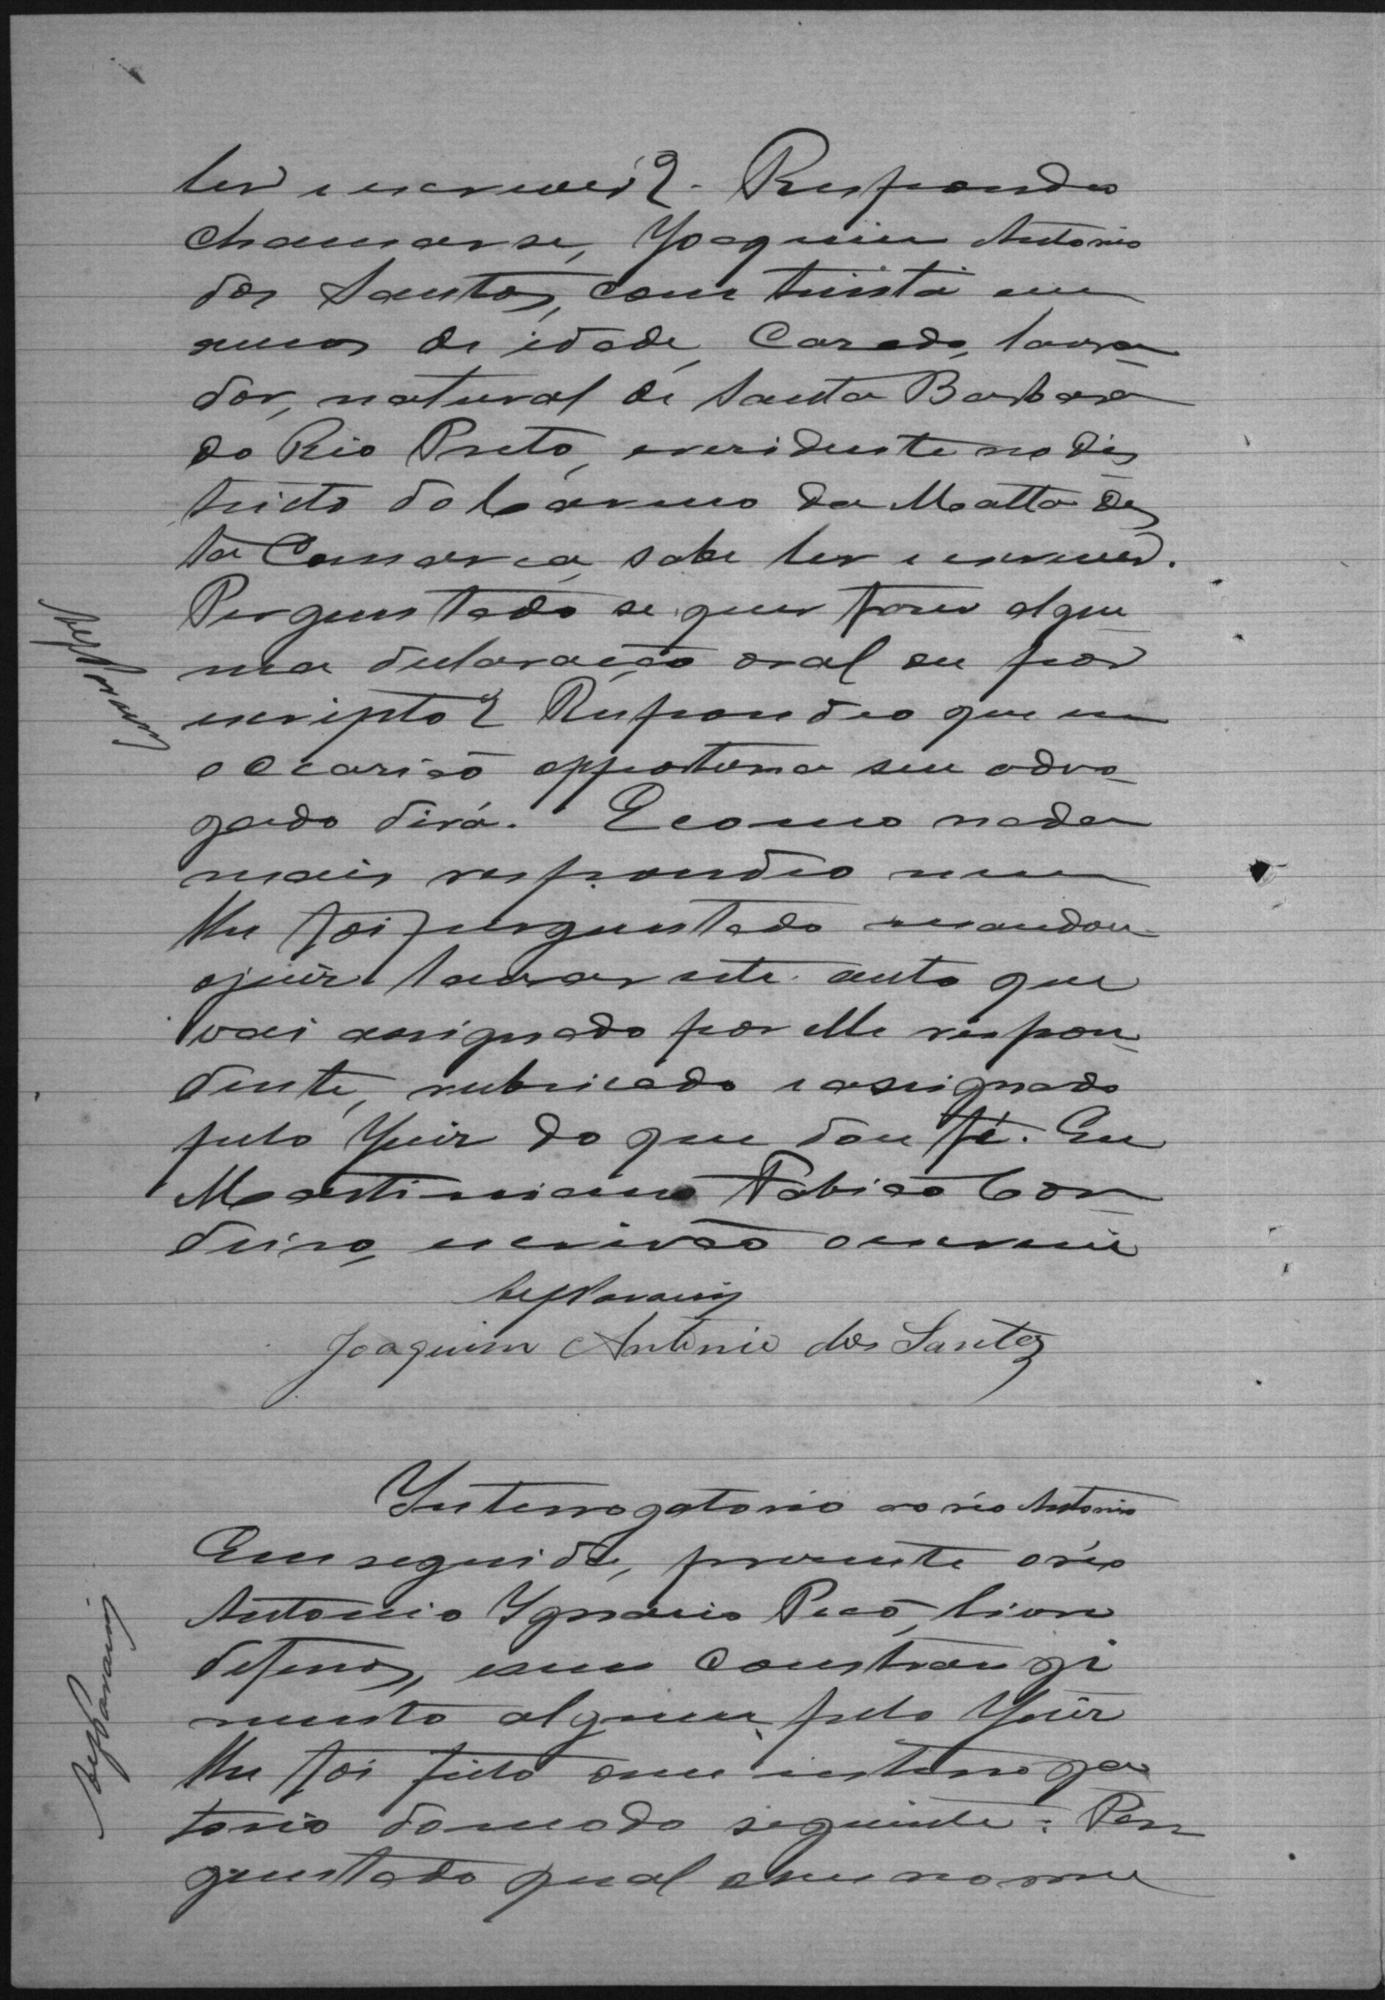 ler e escrever? Respondeu
chamar-se, Joaquim Antonio
dos Santos, com trinta e um
annos de idade, casado, lavra-
dor, natural de Santa Barbara
do Rio Preto, e residente no dis
tricto do Carmo da Matta des
ta Comarca, sabe ler e escrever.
Perguntado se quer fazer algu
ma declaração oral ou por
escripto? Respondeo que em
occasião opportuna seu advo-
gado dirá. E como nada
mais respondeo nem
lhe foi perguntado mandou
o juiz lavrar este auto que
vai assignado por elle respon-
dente, rubricado e assignado
pelo Juiz do que dou fé. Eu
Martiniano Fabião Cor-
deiro, escrivão o escrevi
Joaquim Antonio dos Santos
Interrogatorio ao réo Antonio
Em seguida, presente o réo
Antonio Ignacio Peão, livre
de ferros, e sem constrangi
mento algum, pelo Juiz
lhe foi feito o seu interroga
torio do modo seguinte: Per
guntado qual o seu nome